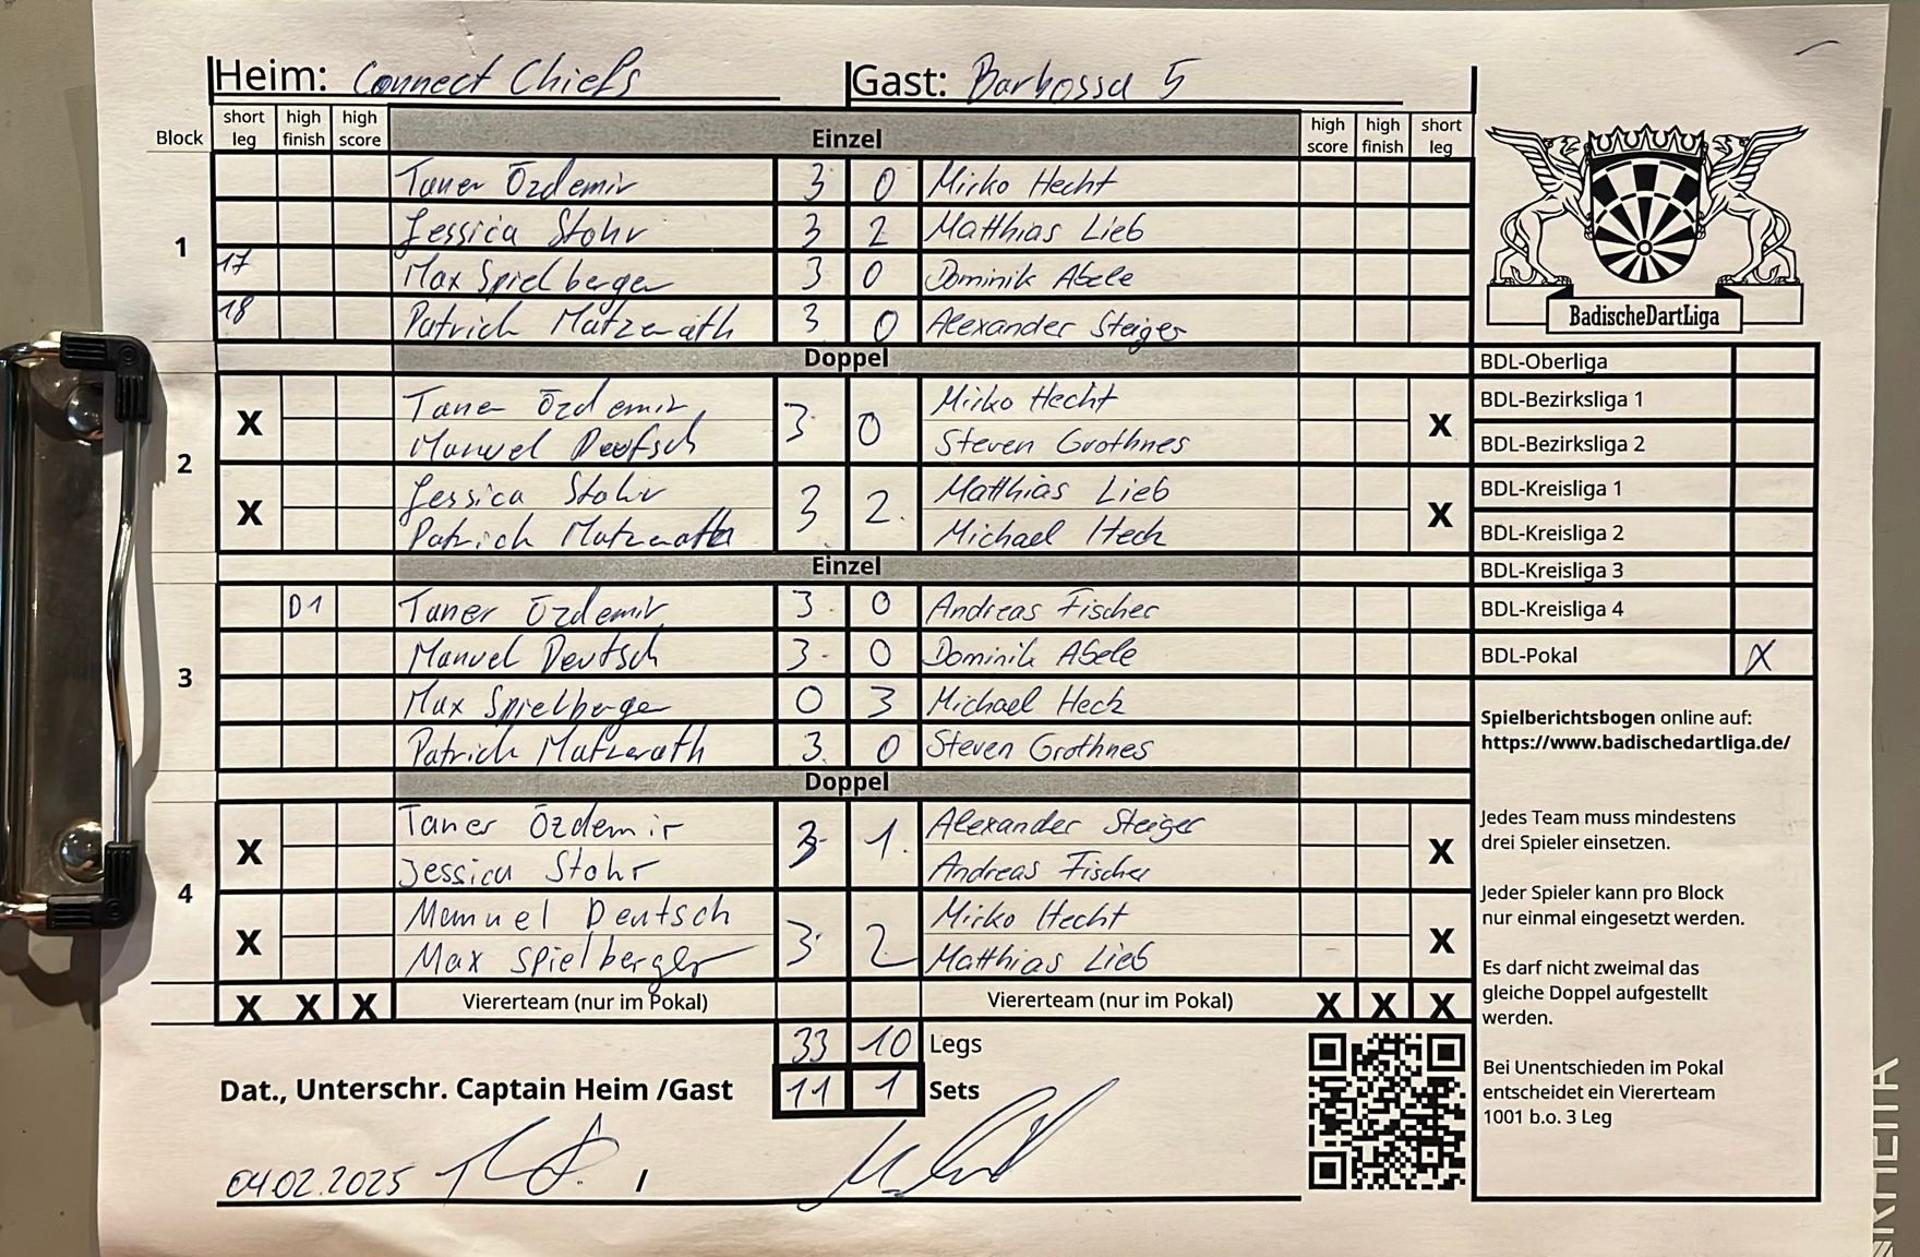 Heim: Connect Chiefs Gast: Barbossa 5
Block short leg high finish high score Einzel high score high finish short leg
1
Taner Özdemir 3 0 Mirko Hecht
Jessica Stohr 3 2 Matthias Lieb
17 Max Spielberger 3 0 Dominik Abele
18 Patrick Matzerath 3 0 Alexander Steiger
BadischeDartLiga
Doppel
2
X Taner Özdemir 3 0 Mirko Hecht X
Manuel Deutsch Steven Grothnes
X Jessica Stohr 3 2 Matthias Lieb X
Patrick Matzerath Michael Heck
Einzel
3
D1 Taner Özdemir 3 0 Andreas Fischer
Manuel Deutsch 3 0 Dominik Abele
Max Spielberger 0 3 Michael Heck
Patrick Matzerath 3 0 Steven Grothnes
Doppel
4
X Taner Özdemir 3 1 Alexander Steiger X
Jessica Stohr Andreas Fischer
X Manuel Deutsch 3 2 Mirko Hecht X
Max Spielberger Matthias Lieb
X X X Viererteam (nur im Pokal) Viererteam (nur im Pokal) X X X
33 10 Legs
Dat., Unterschr. Captain Heim /Gast 11 1 Sets
04.02.2025 /
BDL-Oberliga
BDL-Bezirksliga 1
BDL-Bezirksliga 2
BDL-Kreisliga 1
BDL-Kreisliga 2
BDL-Kreisliga 3
BDL-Kreisliga 4
BDL-Pokal X
Spielberichtsbogen online auf:
https://www.badischedartliga.de/
Jedes Team muss mindestens
drei Spieler einsetzen.
Jeder Spieler kann pro Block
nur einmal eingesetzt werden.
Es darf nicht zweimal das
gleiche Doppel aufgestellt
werden.
Bei Unentschieden im Pokal
entscheidet ein Viererteam
1001 b.o. 3 Leg